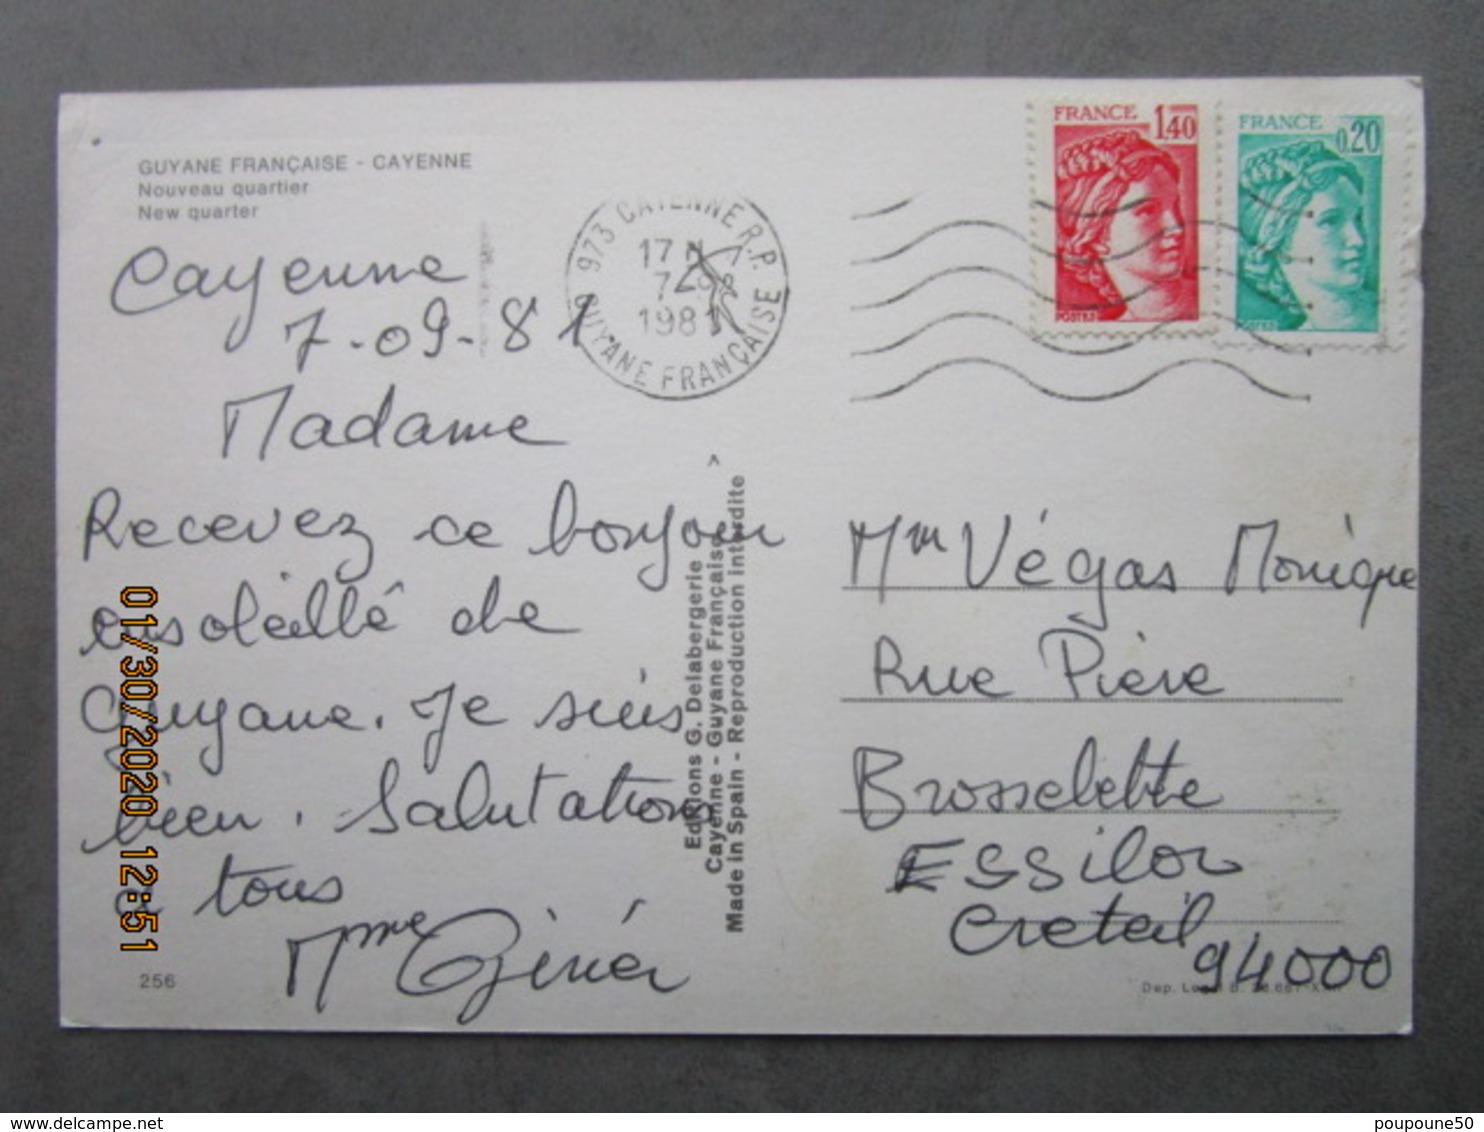 GUYANE FRANÇAISE - CAYENNE
Nouveau quartier
New quarter
Cayenne
7-09-81
Madame
Recevez ce bonjour
ensoleillé de
Guyane. Je suis
bien. Salutations
à tous
Mme
256
973 CAYENNE R.P.
17 H
7
1981
GUYANE FRANÇAISE
FRANCE 1,40
POSTES
FRANCE 0,20
POSTES
Editions G. Delabergerie
Cayenne - Guyane Française
Made in Spain - Reproduction interdite
Mm Végas Monique
Rue Pière
Brosselette
ESSilor
Creteil
94000
Dep. Legal B.
01/30/2020 12:51
poupoune50